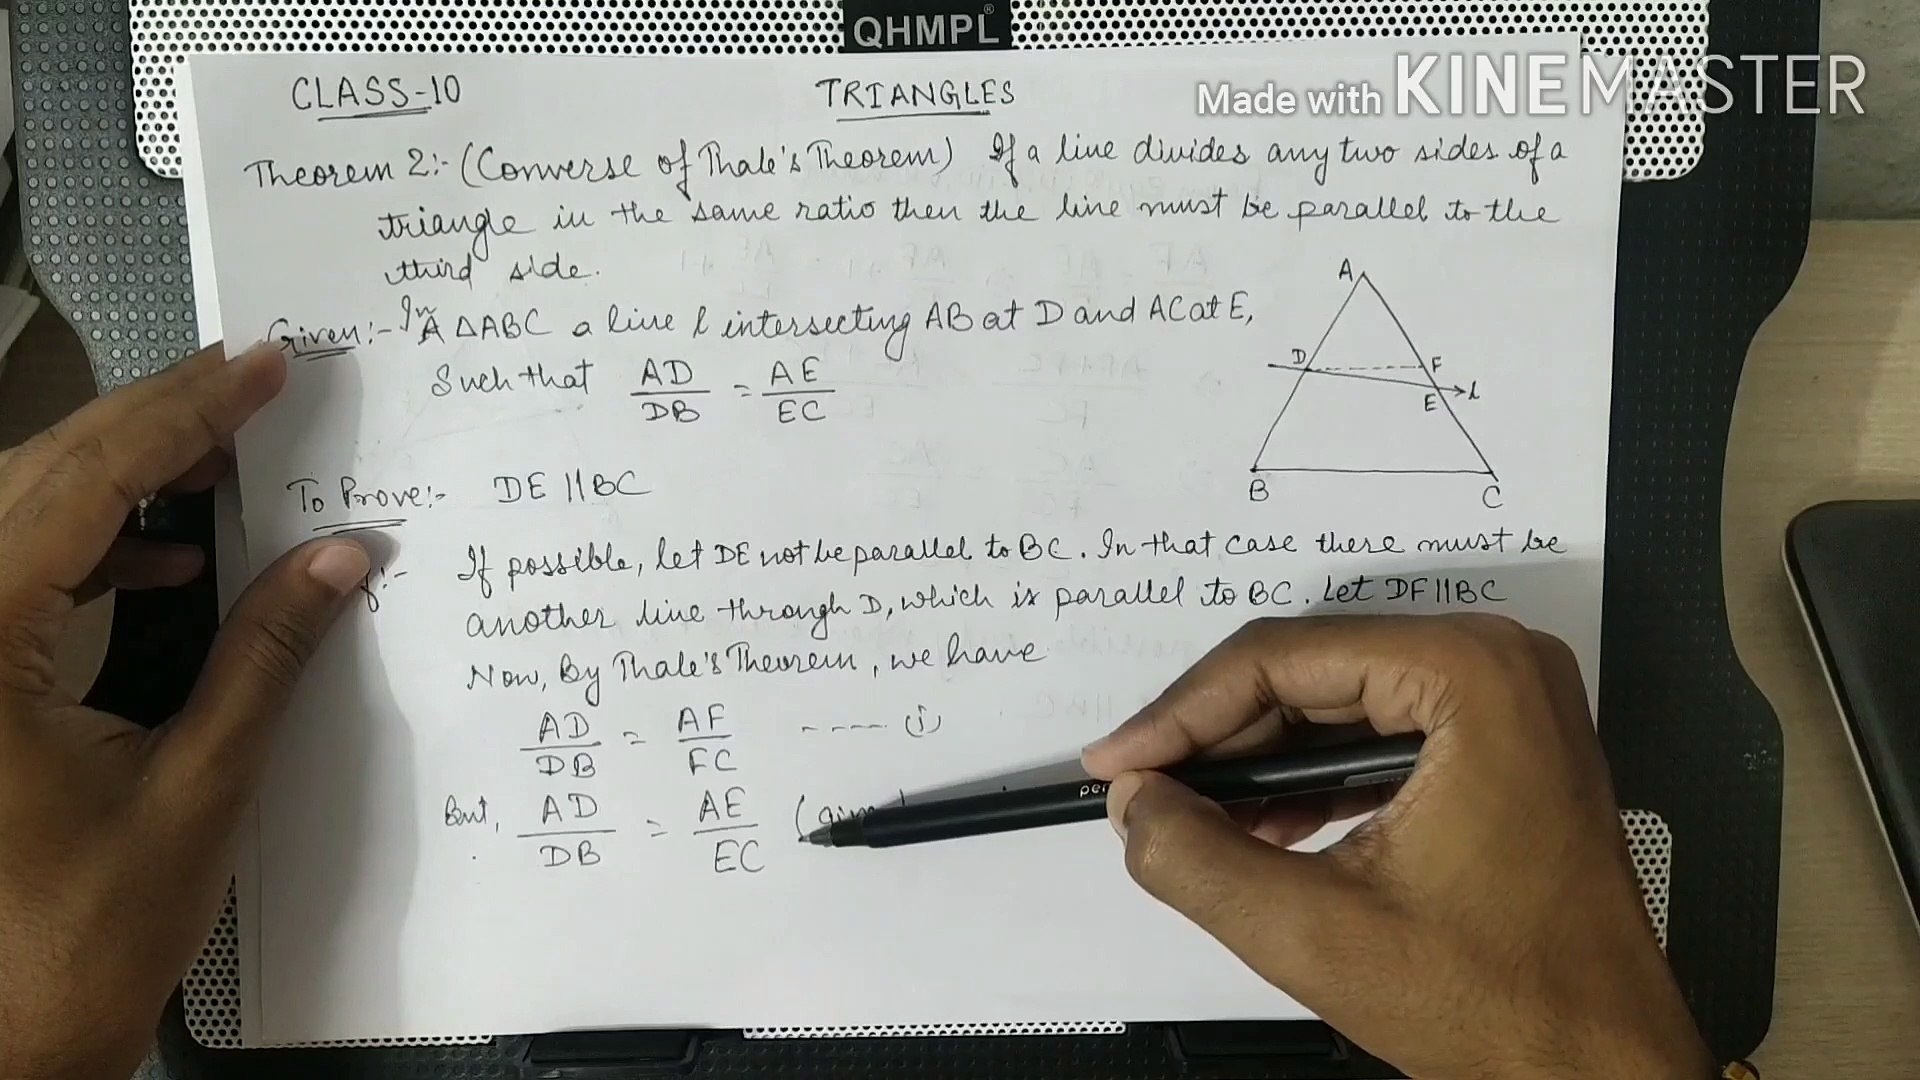 QHMPL®
Made with KINEMASTER
CLASS-10 TRIANGLES
Theorem 2:- (Converse of Thale's Theorem) If a line divides any two sides of a
triangle in the same ratio then the line must be parallel to the
third side.
Given:- In A ΔABC a line l intersecting AB at D and AC at E,
Such that AD/DB = AE/EC
A
D F
E l
B C
To Prove:- DE || BC
If possible, let DE not be parallel to BC. In that case there must be
another line through D, which is parallel to BC. Let DF || BC
Now, By Thale's Theorem, we have
AD/DB = AF/FC ---- (i)
But, AD/DB = AE/EC